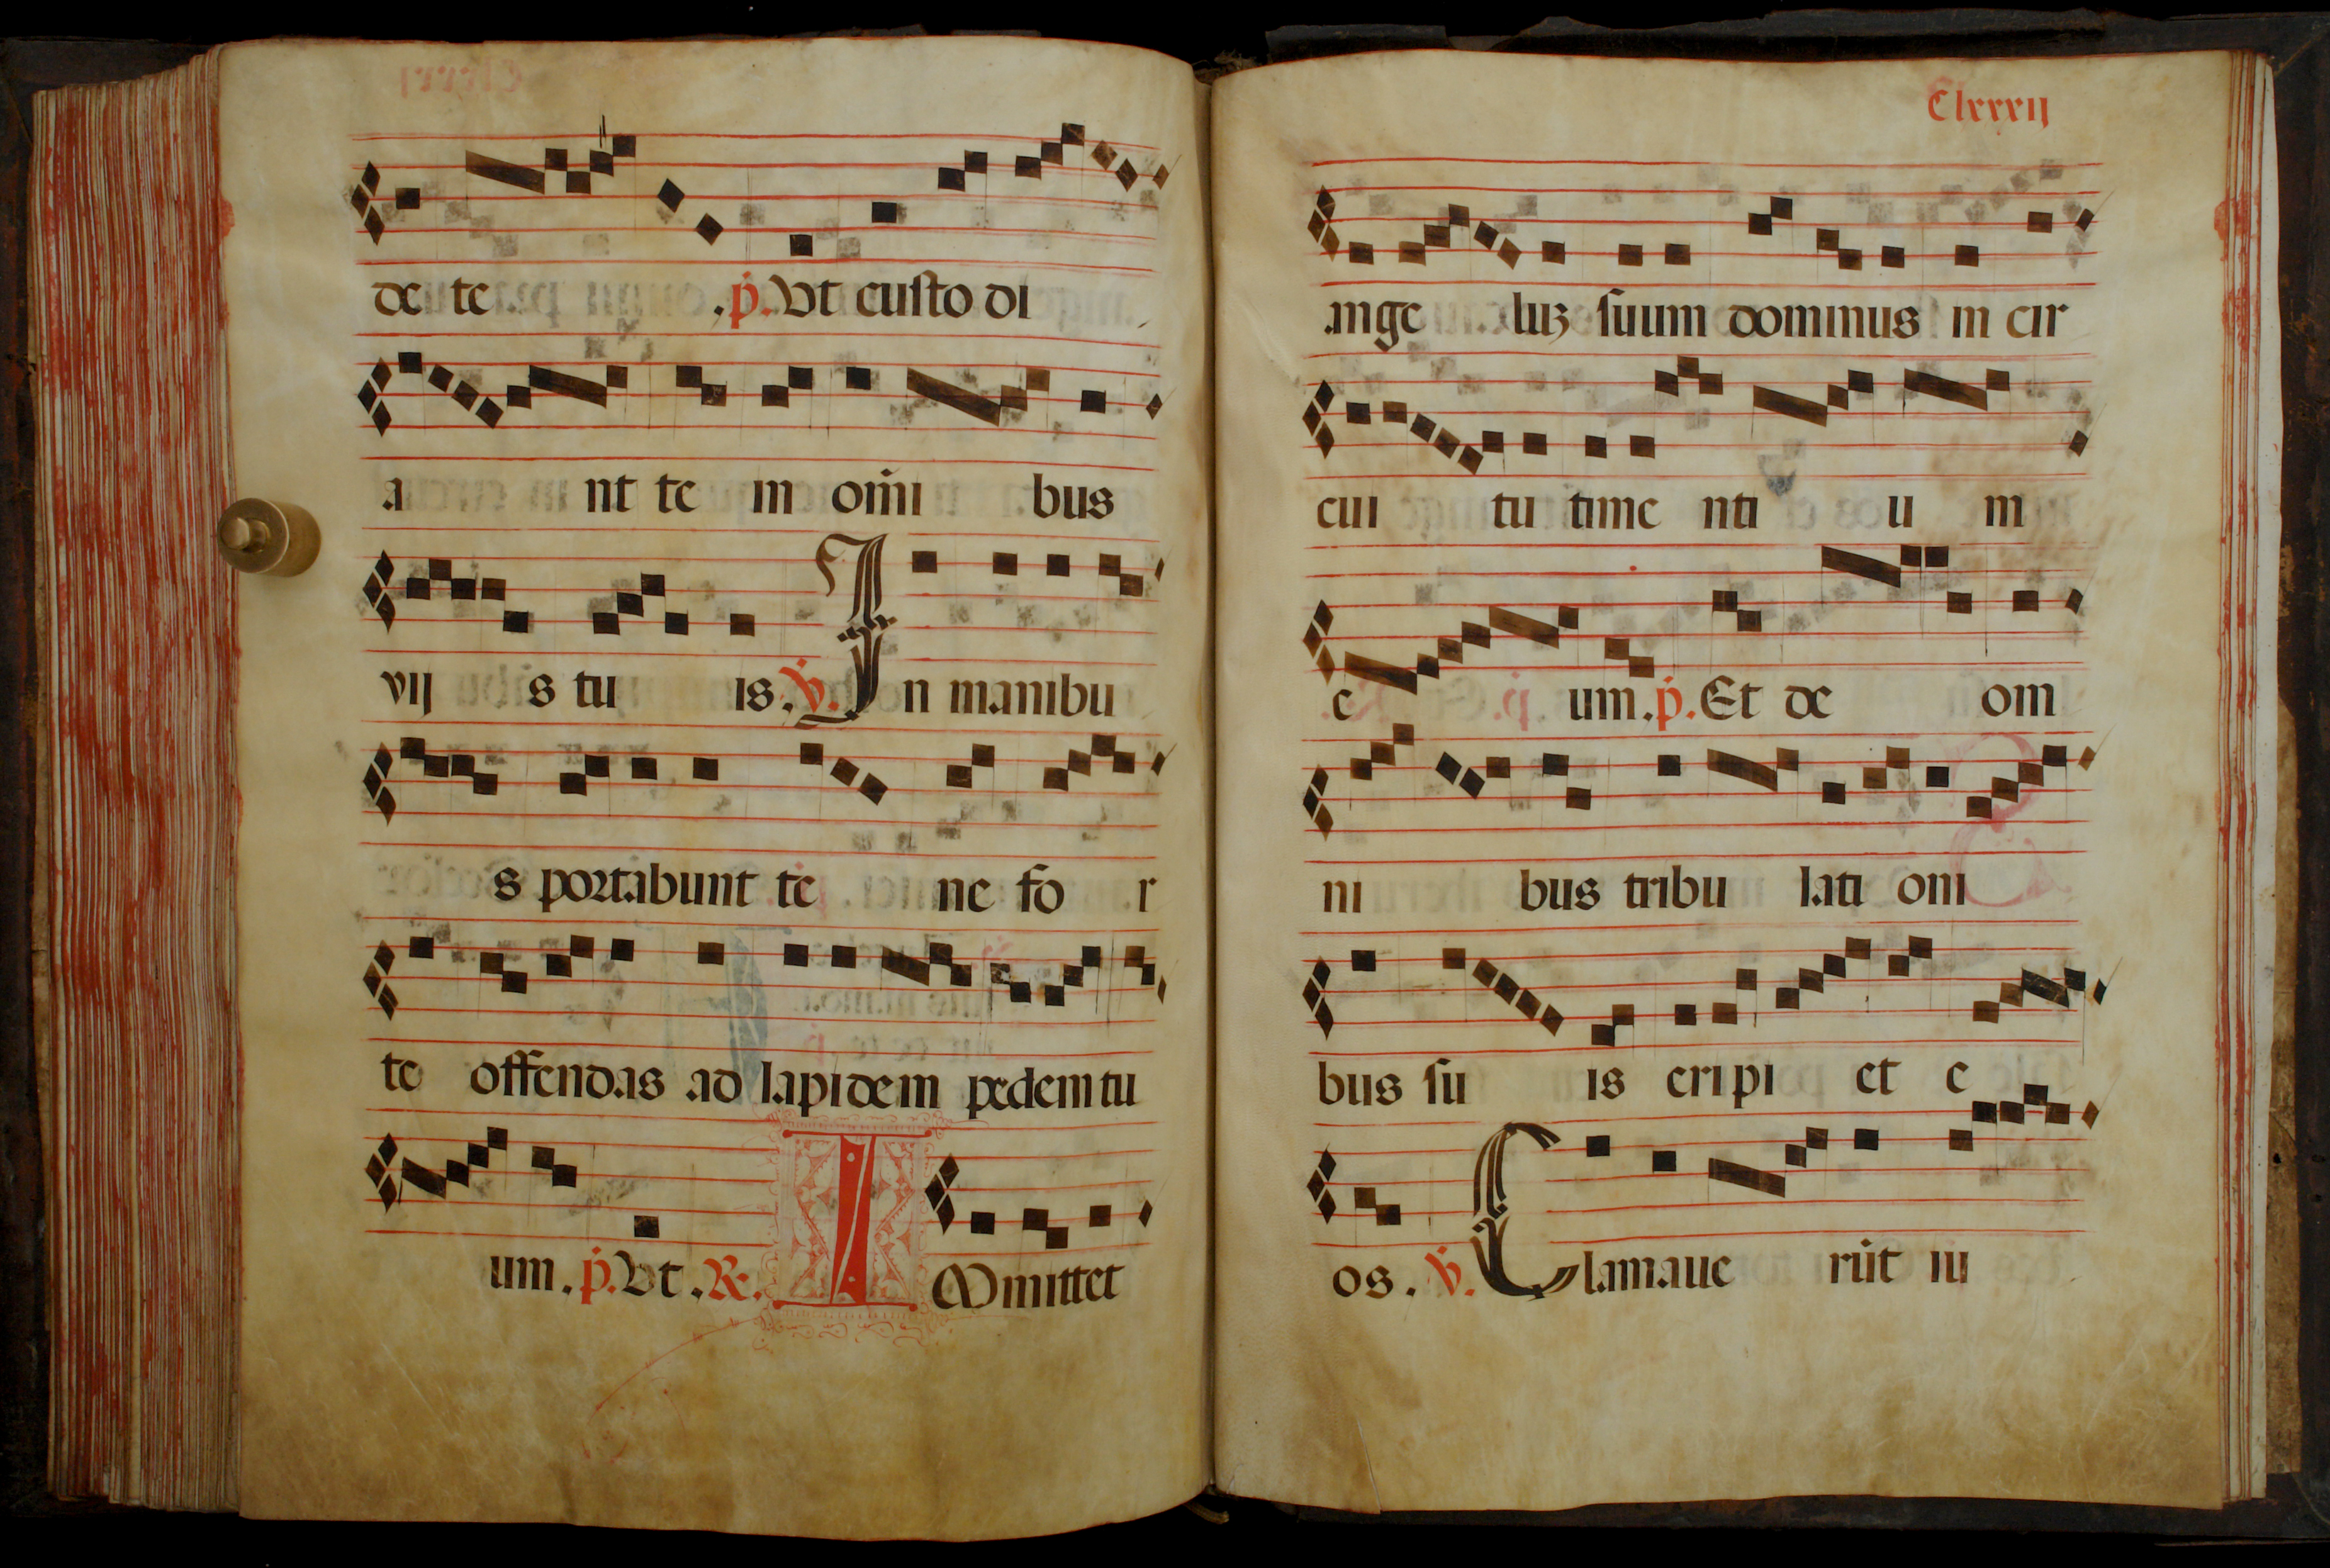 de te .p. Ut custo di
a nt te in om̄i bus
vij s tu is. V. In manibu
s portabunt te ne fo r
te offendas ad lapidem pedem tu
um. p. Ut. R. I Mmittet
Clxxxij
ange luz suum dominus in cir
cui tu time nti u m
e um. p. Et de om
ni bus tribu lati oni
bus su is eripi et e
os. V. Clamaue rūt iu